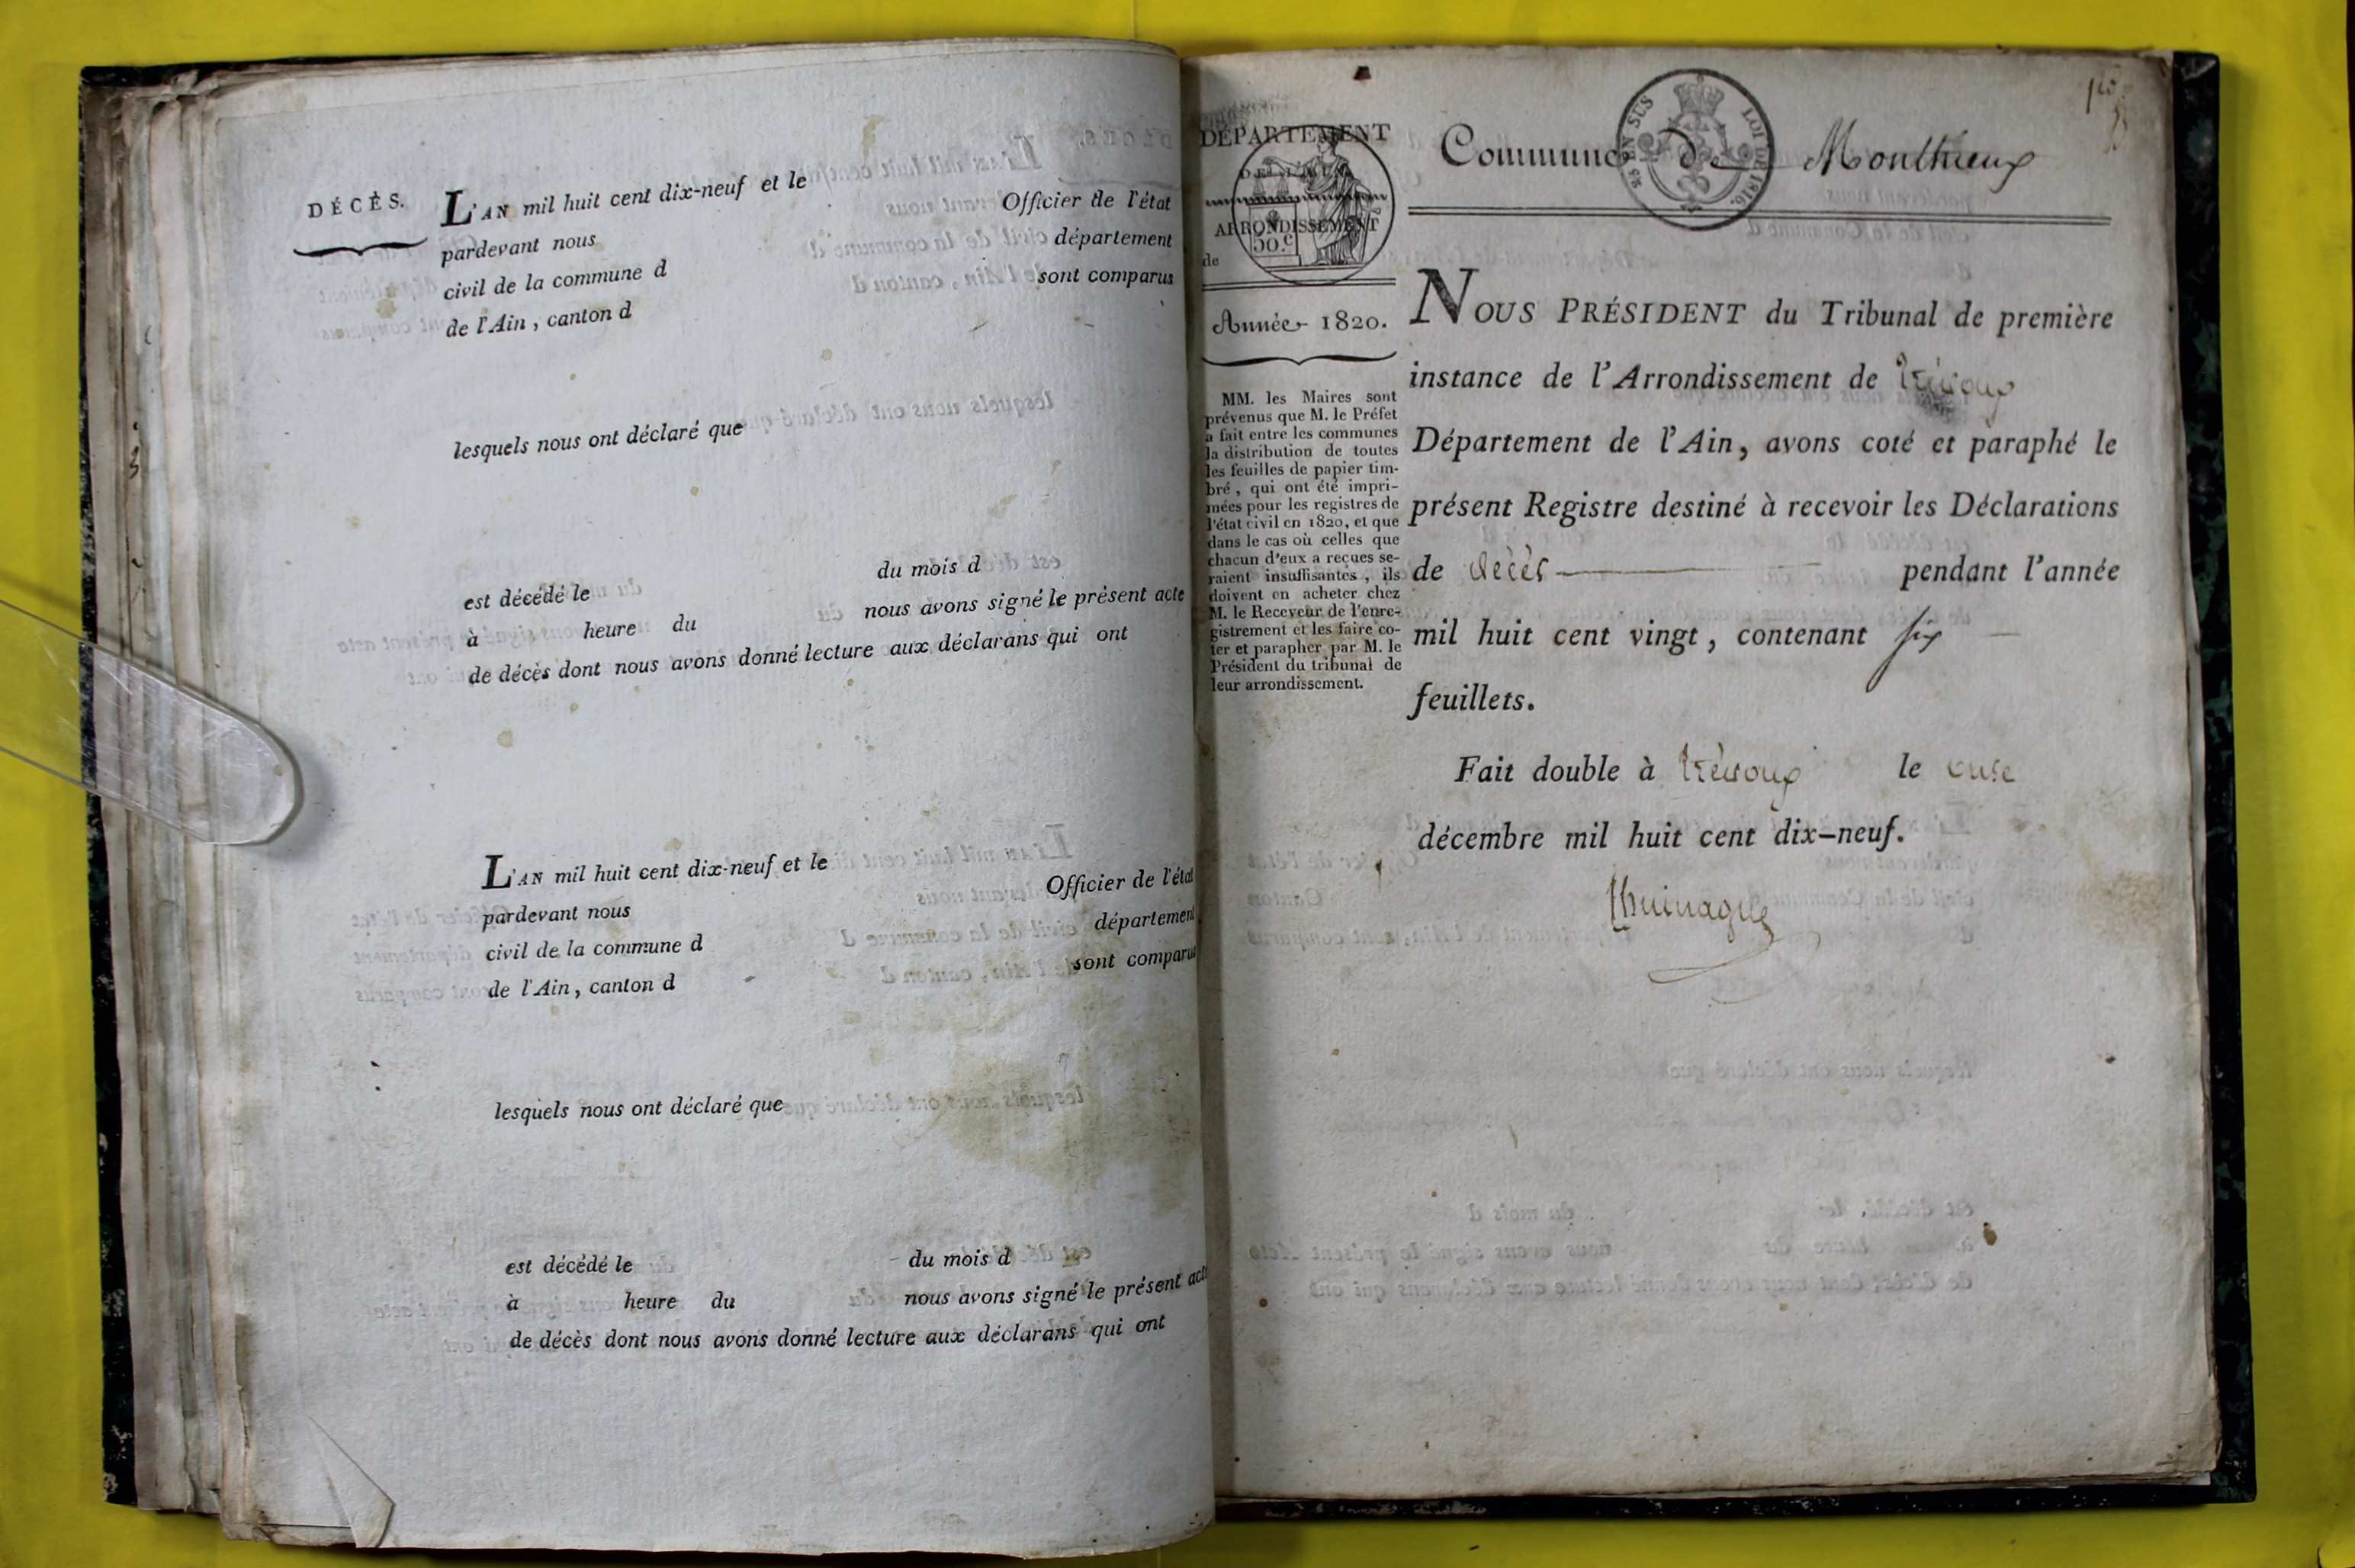 DÉCÈS.
L'AN mil huit cent dix-neuf et le
pardevant nous Officier de l'état
civil de la commune d département
de l'Ain, canton d sont comparus
lesquels nous ont déclaré que
est décédé le du mois d
à heure du nous avons signé le présent acte
de décès dont nous avons donné lecture aux déclarans qui ont
L'AN mil huit cent dix-neuf et le
pardevant nous Officier de l'état
civil de la commune d département
de l'Ain, canton d sont comparus
lesquels nous ont déclaré que
est décédé le du mois d
à heure du nous avons signé le présent acte
de décès dont nous avons donné lecture aux déclarans qui ont
DÉPARTEMENT
DE L'AIN.
ARRONDISSEMENT
de
50.c
Année 1820.
MM. les Maires sont
prévenus que M. le Préfet
a fait entre les communes
la distribution de toutes
les feuilles de papier tim-
bré, qui ont été impri-
mées pour les registres de
l'état civil en 1820, et que
dans le cas où celles que
chacun d'eux a reçues se-
raient insuffisantes, ils
doivent en acheter chez
M. le Receveur de l'enre-
gistrement et les faire co-
ter et parapher par M. le
Président du tribunal de
leur arrondissement.
Commune de Monthieux
EN SUS LOI DE 1816.
NOUS PRÉSIDENT du Tribunal de première
instance de l'Arrondissement de trévoux
Département de l'Ain, avons coté et paraphé le
présent Registre destiné à recevoir les Déclarations
de décès pendant l'année
mil huit cent vingt, contenant six
feuillets.
Fait double à trévoux le onse
décembre mil huit cent dix-neuf.